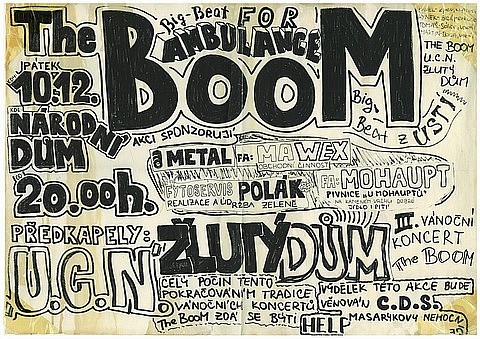 The BOOM
Big-Beat FOR
AMBULANCE
PÁTEK
10.12.
NÁRODNÍ
DŮM
20.00h.
THE BOOM
U.C.N.
ŽLUTÝ
DŮM
Big-
Beat z ÚSTÍ
AKCI SPONZORUJÍ
a METAL FA: MAWEX
OBCHODNÍ ČINNOST
FYTOSERVIS POLÁK
REALIZACE A ÚDRŽBA ZELENĚ
FA: MOHAUPT
PIVNICE „U MOHAUPTŮ"
NA KAMENÉM VRCHU DOBRÉ
JÍDLO I PITÍ
PŘEDKAPELY:
U.C.N.
ŽLUTÝ DŮM
III. VÁNOČNÍ
KONCERT
The BOOM
CELÝ POČIN TENTO
POKRAČOVÁNÍM TRADICE
VÁNOČNÍCH KONCERTŮ
The BOOM ZDÁ SE BÝTI
HELP
VÝDĚLEK TÉTO AKCE BUDE
VĚNOVÁN C.D.S.
MASARYKOVY NEMOCNICE